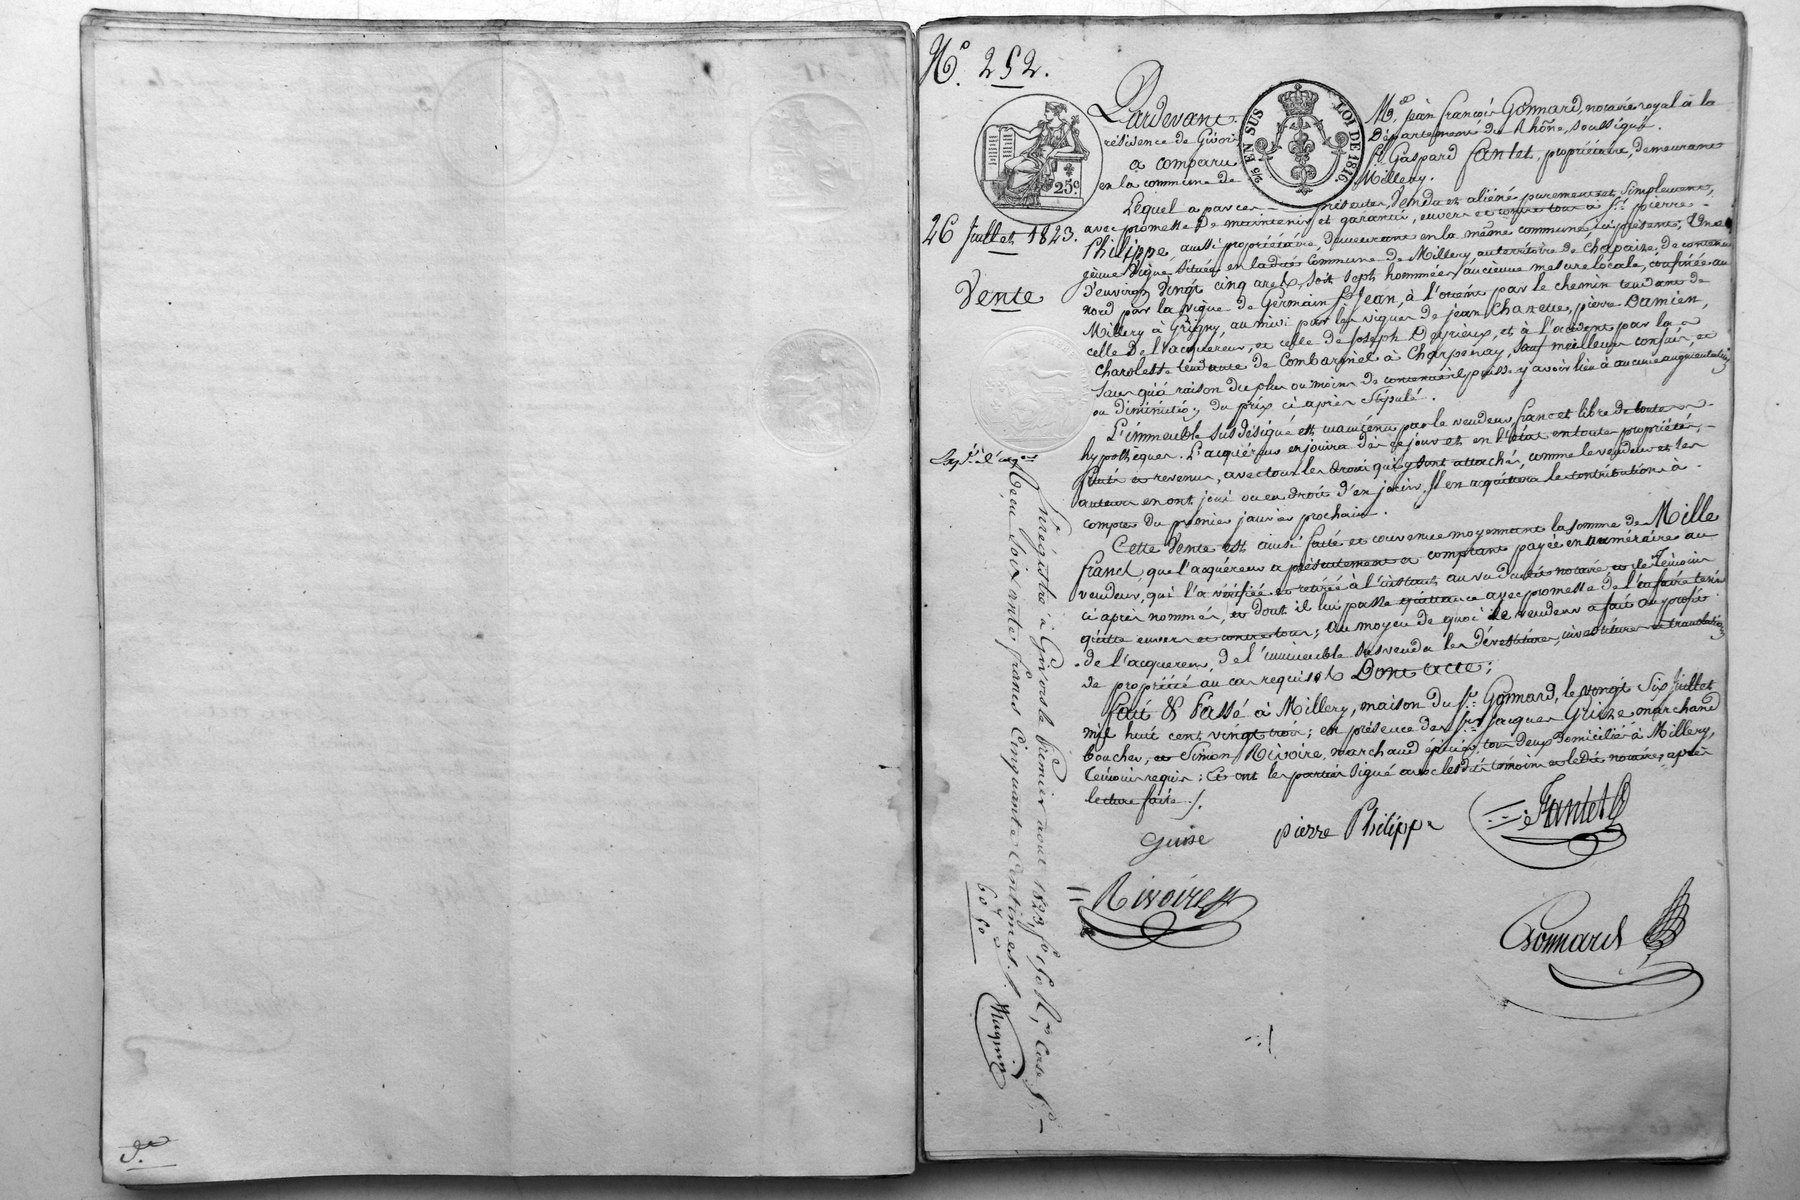 N.° 252.
Pardevant M.e jean françois Gonnard, notaire royal à la
résidence de Givors Département du Rhône, soussigné.
a comparu S.r Gaspard fantet, propriétaire, demeurant
en la commune de Millery.
25c
EN SUS LOI DE 1816
26 Juillet 1823.
Vente
Lequel a par ces présentes, vendu et aliéné purement et simplement,
avec promesse de maintenir et garantir, envers et contre tous à S.r pierre
Philippe, aussi propriétaire, demeurant en la même commune, ici présent, Une
jeune vigne située en ladite commune de Millery au territoire de Chapaize, de contenue
d'environ vingt cinq ares, soit sept hommées ancienne mesure locale, confinée au
nord par la vigne de Germain St Jean, à l'orient par le chemin tendant de
Millery à Grigny, au midi par les vignes de jean Charette, pierre Damien,
celle de l'acquéreur, et celle de Joseph Deyrieux, et à l'occident par la
charoless tendante de Combarinel à Charpenay, sauf meilleurs confins, et
sans qu'à raison du plus ou moins de contenue il puisse y avoir lieu à aucune augmentation
ou diminution du prix ci après stipulé.
L'immeuble susdésigné est maintenu par le vendeur franc et libre de toutes
hypothèques. L'acquéreur en jouira dès ce jour et en l'état en toute propriété,
fruits et revenus, avec tous les droits qui y sont attachés, comme le vendeur et ses
auteurs en ont joui ou eu droit d'en jouir. Il en acquittera les contributions à
compter du premier janvier prochain.
Cette vente est ainsi faite et convenue moyennant la somme de Mille
francs, que l'acquéreur a présentement et comptant payée en numéraire au
vendeur, qui l'a vérifiée et retirée à l'instant, au vu dudit notaire et des témoins
ci après nommés, et dont il lui passe quittance avec promesse de l'en faire tenir
quitte envers et contre tous; au moyen de quoi le vendeur a fait au profit
de l'acquéreur, de l'immeuble susvendu les dévestitures, investitures et translation
de propriété au cas requises Dont acte;
fait & Passé à Millery, maison du S.r Gonnard, le vingt six juillet
mil huit cent vingt trois; en présence des S.rs jacques Guise marchand
boucher, et Simon Rivoire, marchand épicier, tous deux domiciliés à Millery,
témoins requis; Et ont les parties signé avec lesdits témoins et ledit notaire, après
lecture faite ./.
guise pierre Philippe Fantet
Rivoire Gonnard
Enrégistré à Givors le Premier aout 1823, f.o 150 R.o, Case 5.e
Reçu soixante francs Cinquante Centimes.
60 f 50 c
Magnin